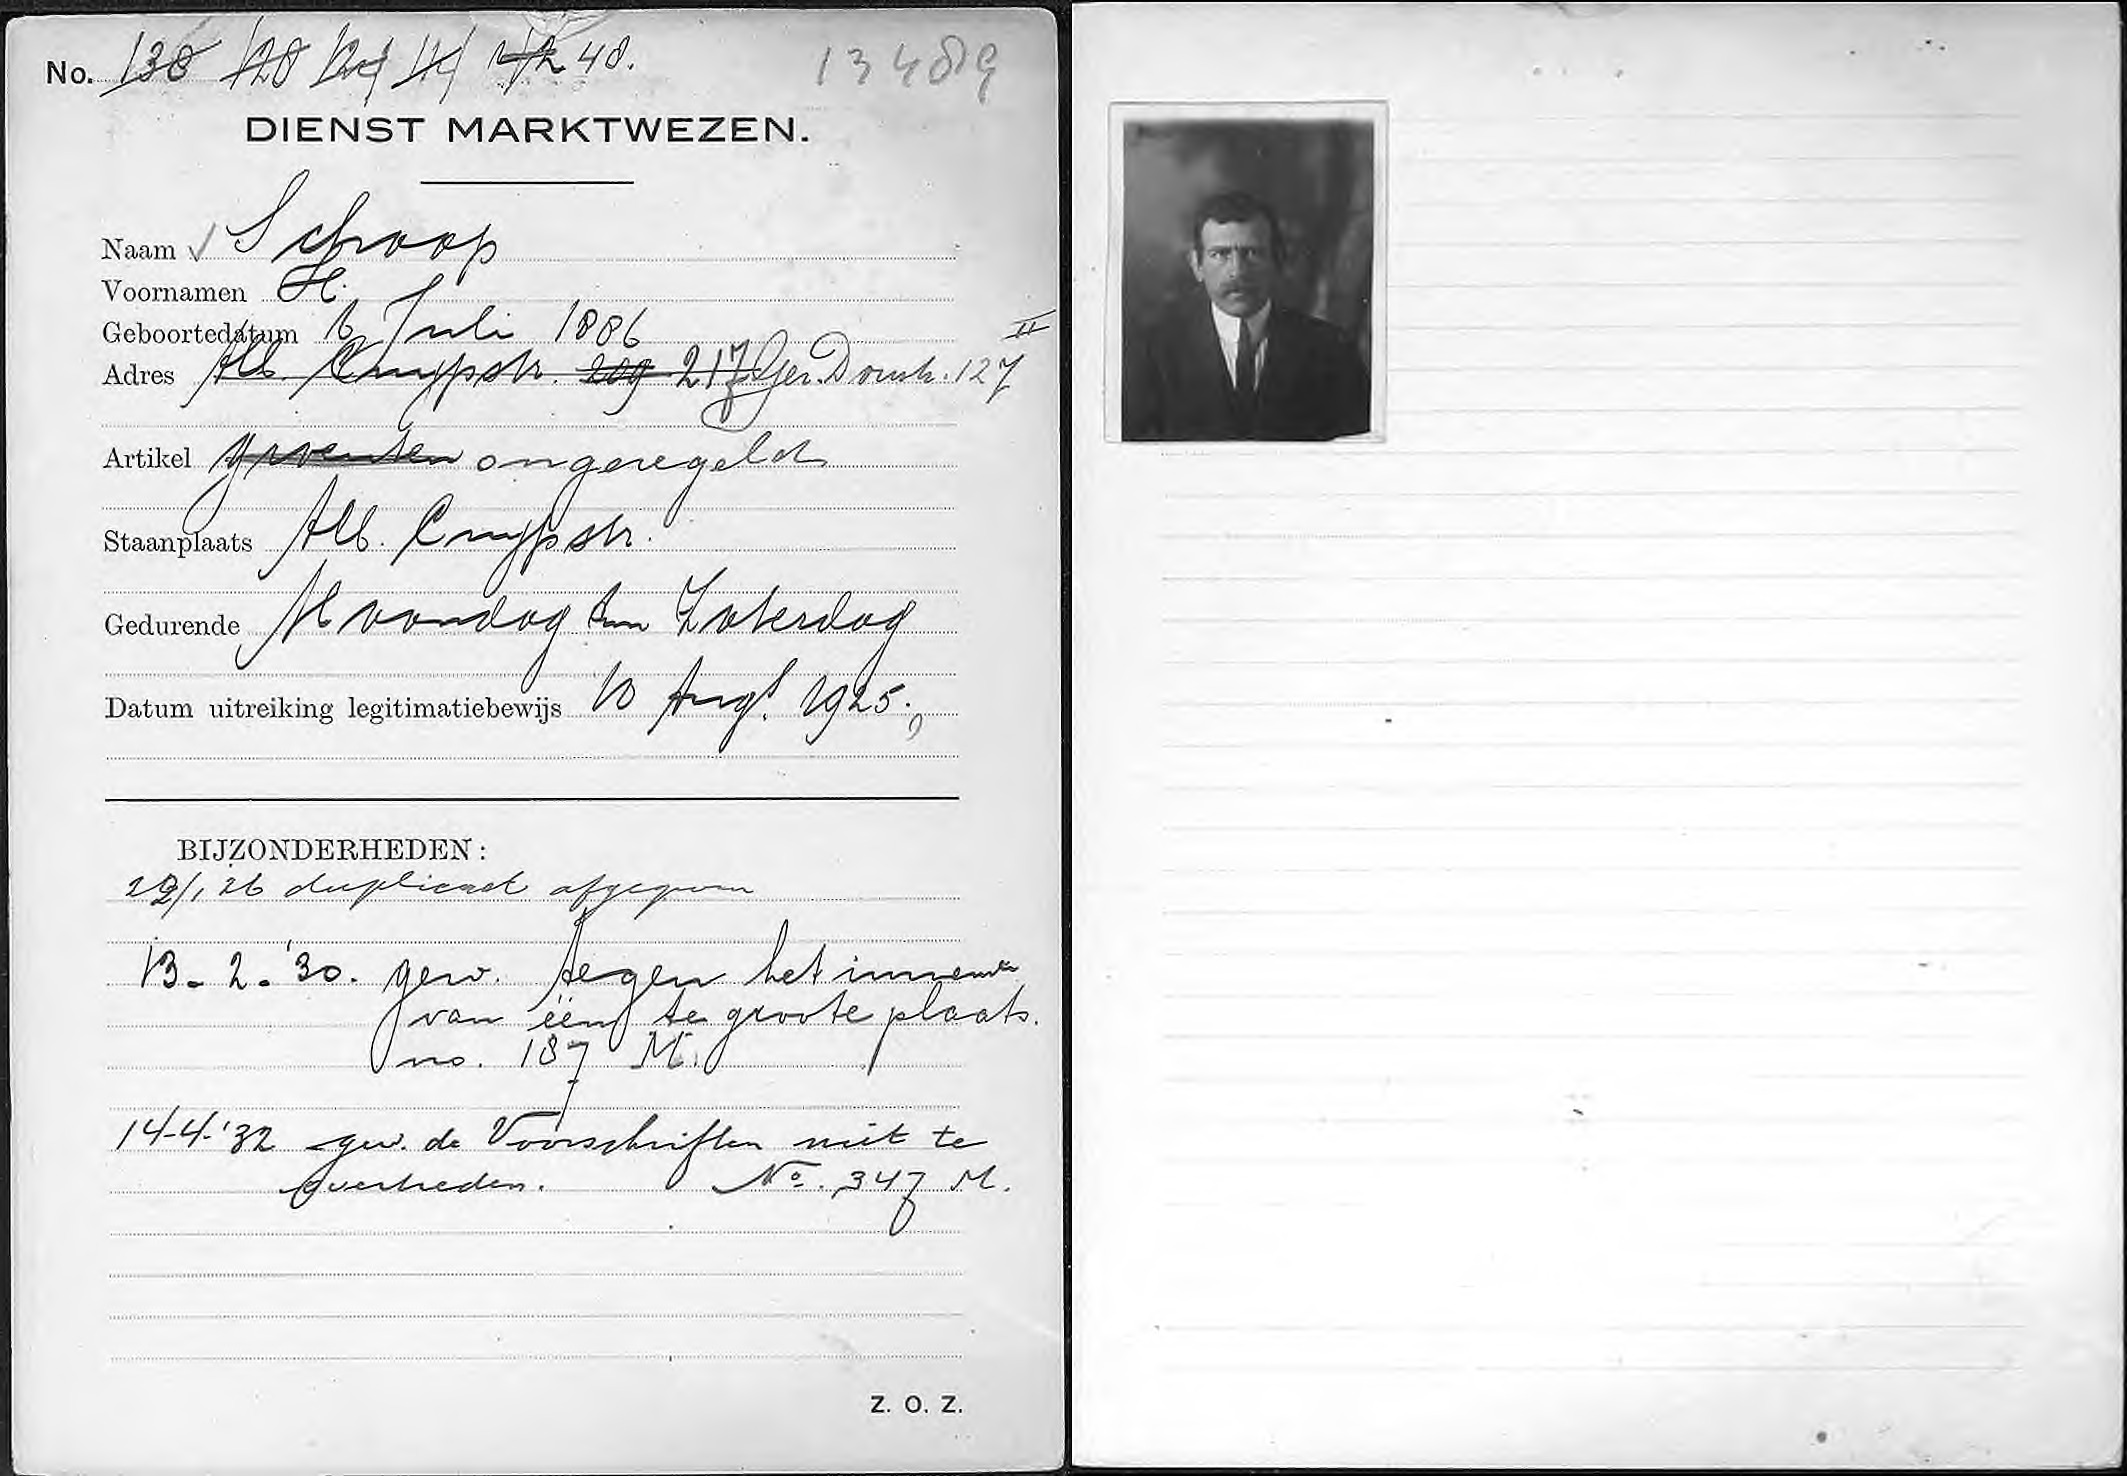 No. 138 128 124 114 112 48. 13489
DIENST MARKTWEZEN.
Naam √ Schoop
Voornamen H.
Geboortedatum 6 Juli 1886
Adres Alb. Cuypstr. 209 217 Ger. Doustr. 127 II
Artikel groenten ongeregeld
Staanplaats Alb. Cuypstr.
Gedurende Maandag t/m Zaterdag
Datum uitreiking legitimatiebewijs 10 Aug. 1925.
BIJZONDERHEDEN:
29/1 26 duplicaat afgegeven
13-2-'30. gew. tegen het innemen
van één te groote plaats.
no. 187 M.
14-4-'32 gew. de Voorschriften niet te
overtreden. No. 347 M.
Z. O. Z.